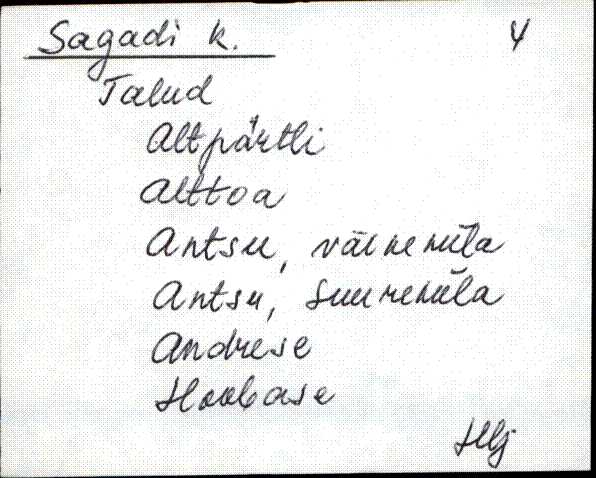 Sagadi k. 4
Talud
Altpärtli
Alttoa
Antsu, väikeküla
Antsu, Suureküla
Andrese
Hoobase
Hlj